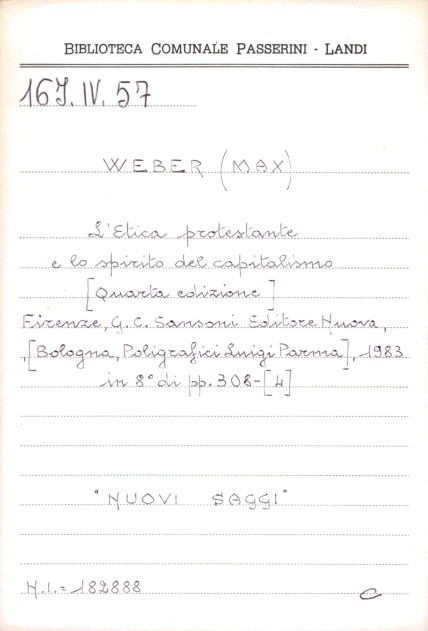 BIBLIOTECA COMUNALE PASSERINI - LANDI
16J.IV.57
WEBER (MAX)
L'Etica protestante
e lo spirito del capitalismo
[Quarta edizione]
Firenze, G. C. Sansoni Editore Nuova,
,[Bologna, Poligrafici Luigi Parma], 1983
in 8° di pp. 308-[4]
"NUOVI SAGGI"
N.I.= 182888
C